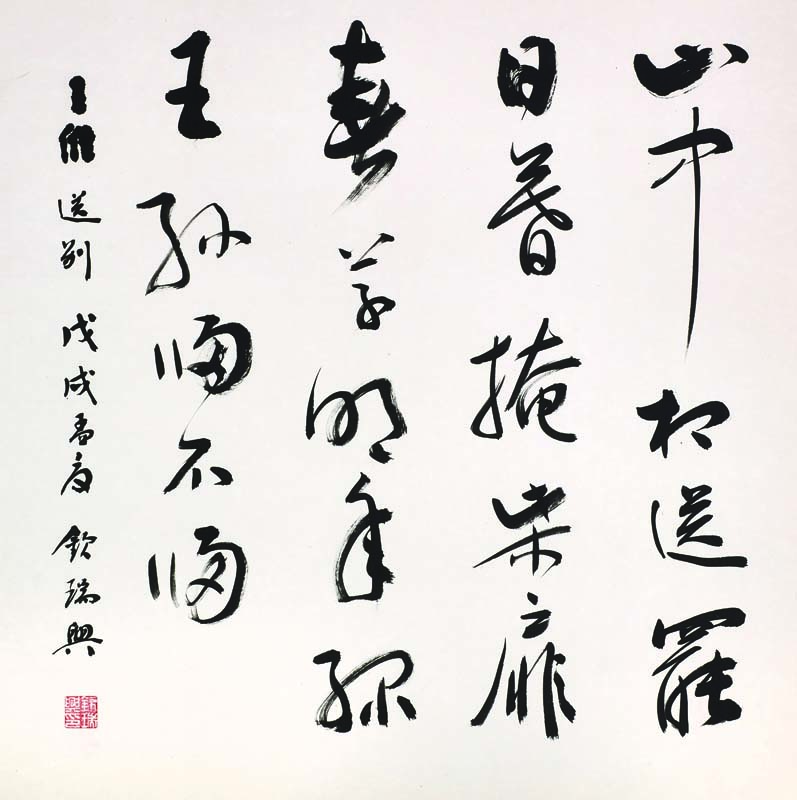 山中相送罷
日暮掩柴扉
春草明年綠
王孫歸不歸
王維送別 戊戌孟夏 欽瑞興
欽瑞興印